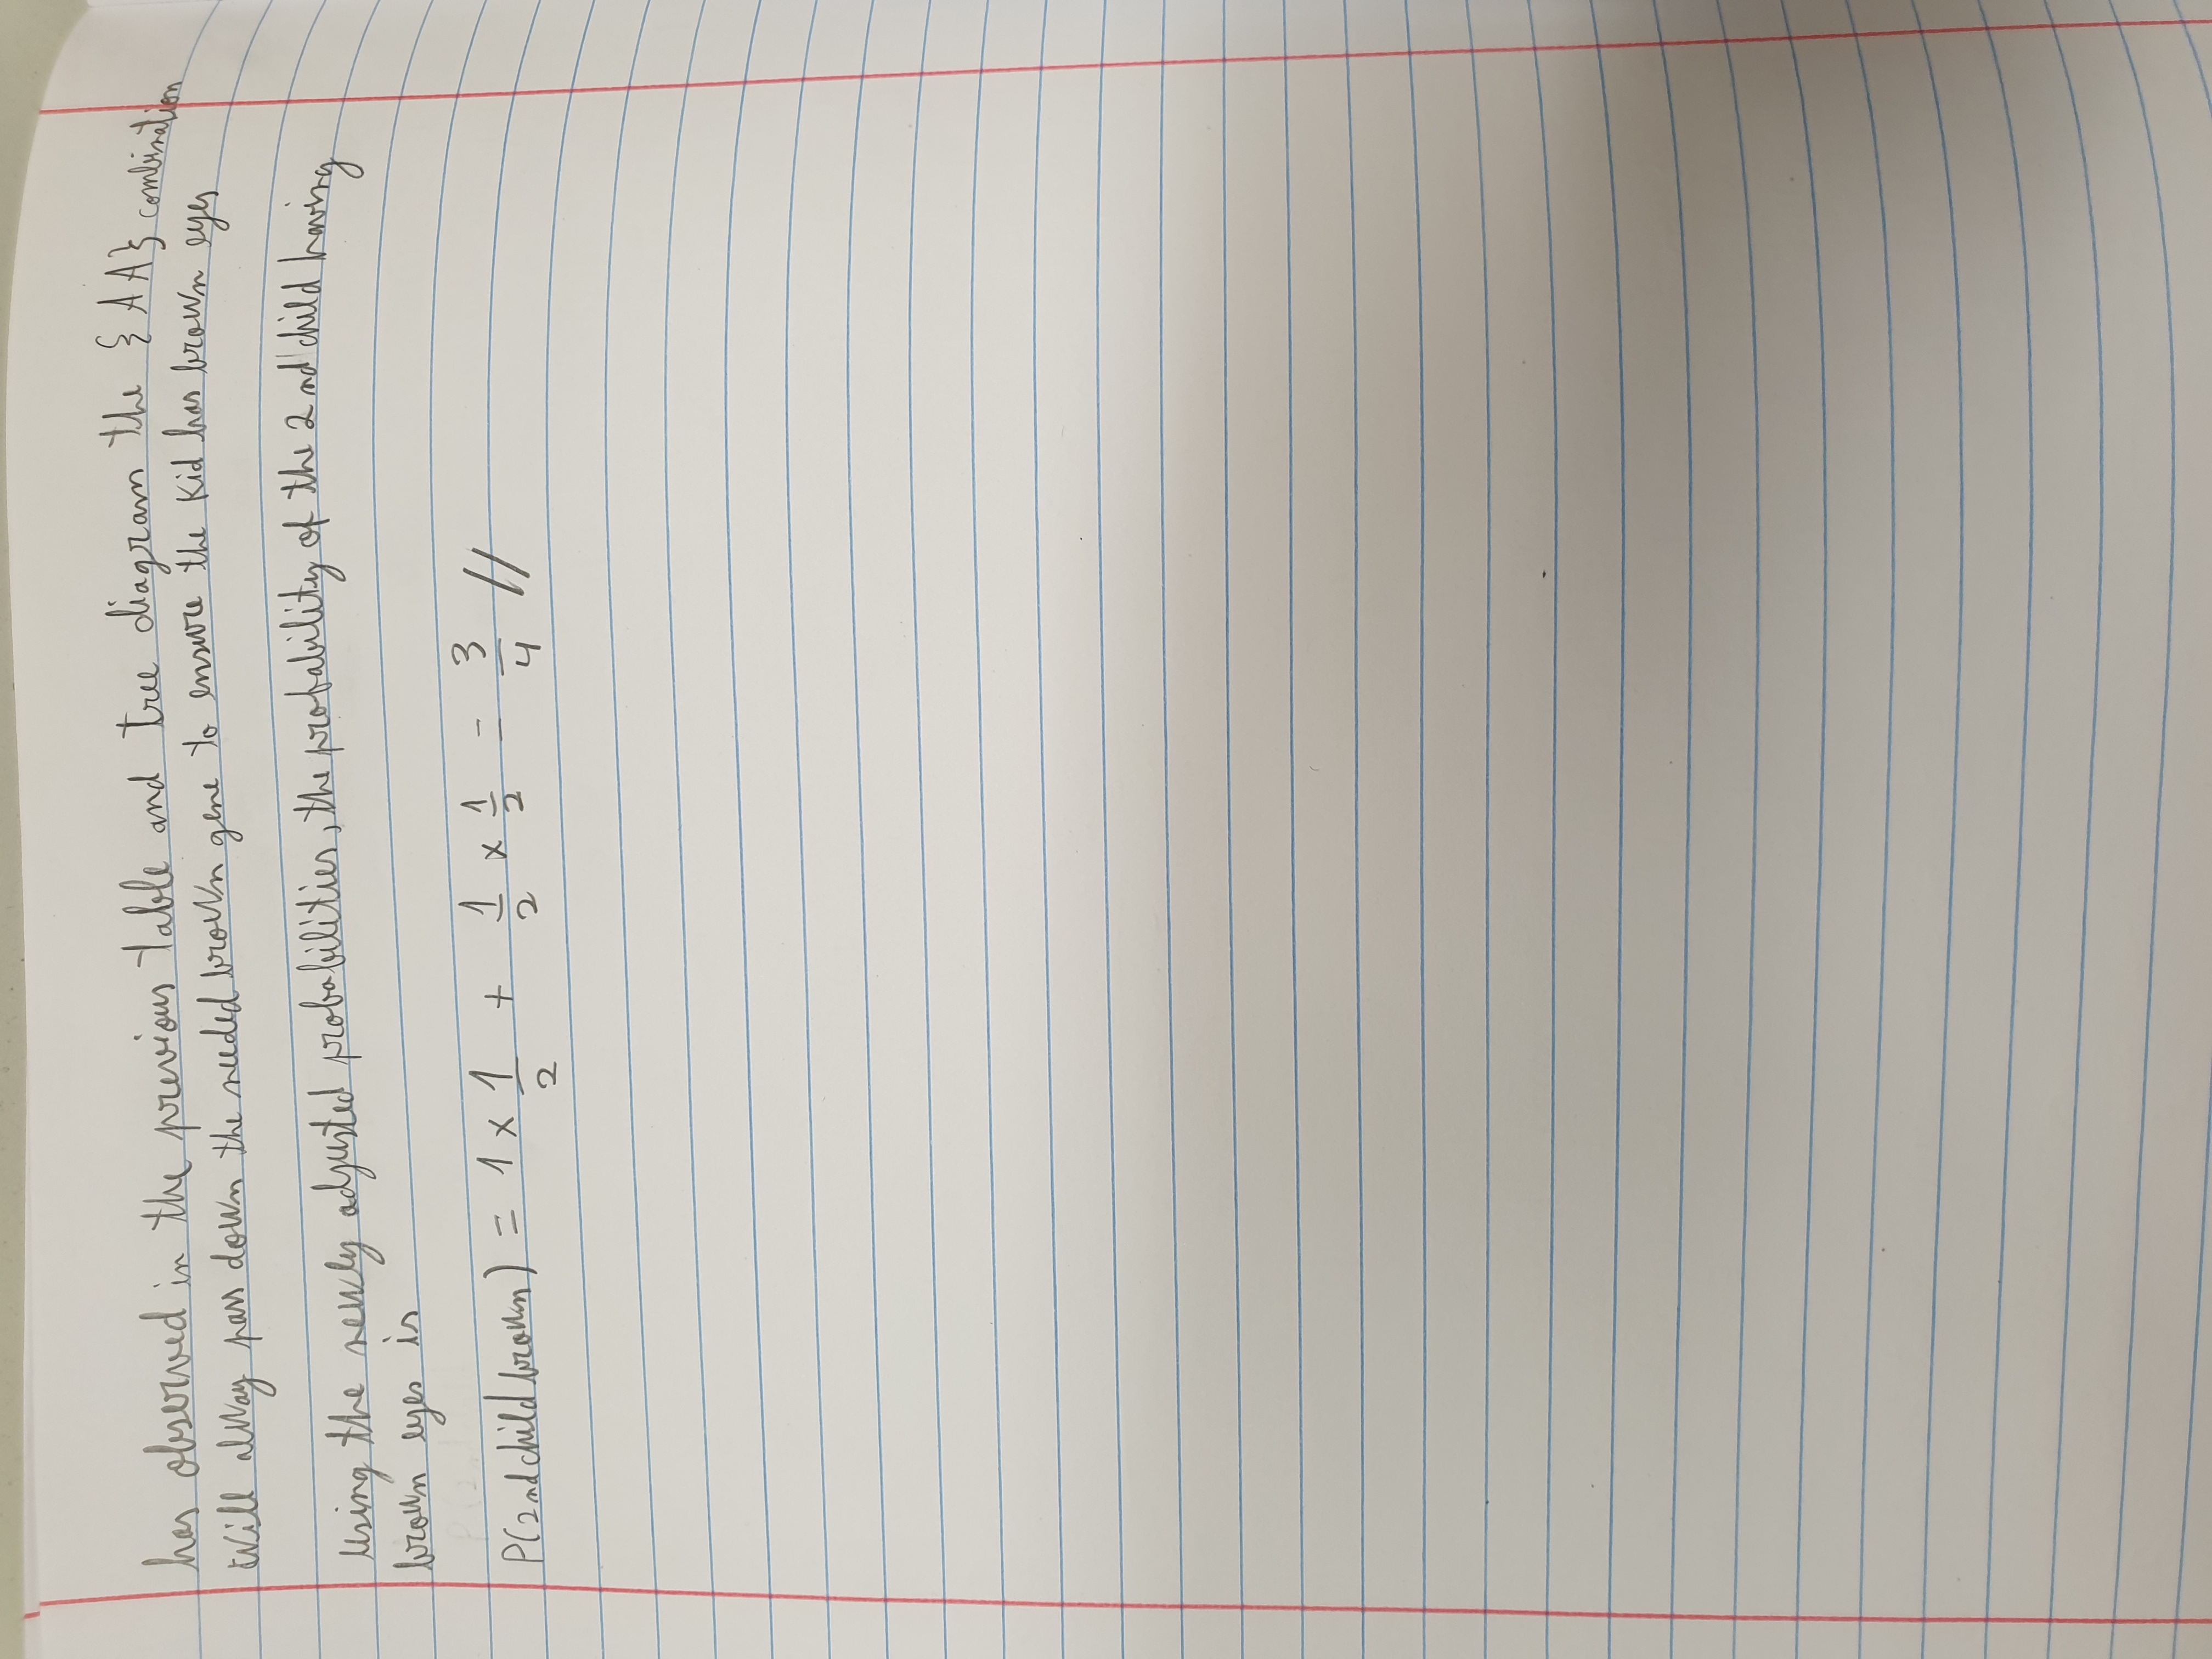 has observed in the previous table and tree diagram the {AA} combination
will alway pass down the needed brown gene to ensure the kid has brown eyes
using the newly adjusted probabilities, the probability of the 2nd child having
brown eyes is
P(2nd child brown) = 1 × 1/2 + 1/2 × 1/2 = 3/4 //